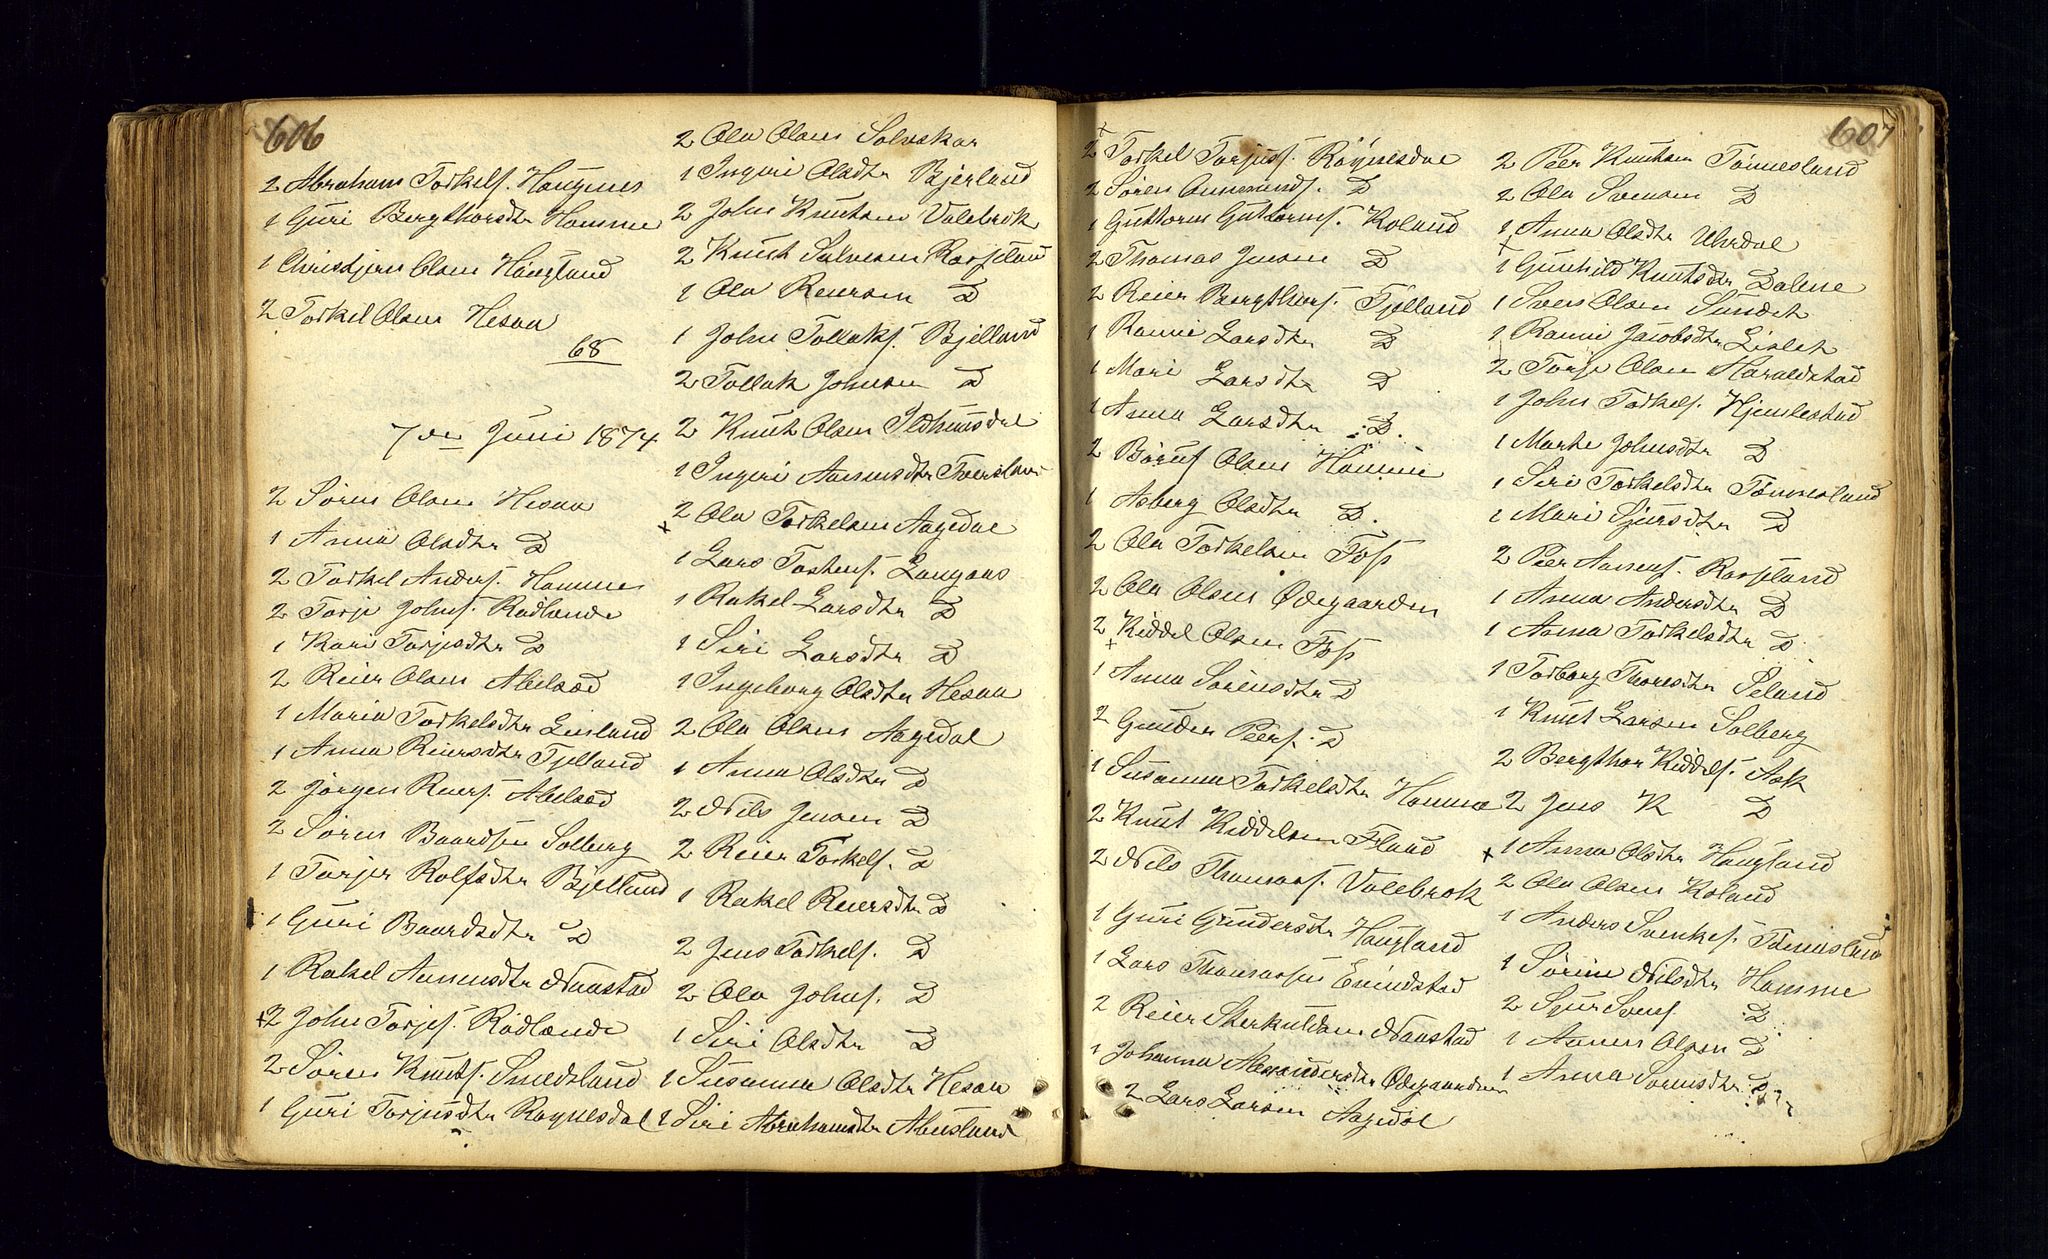 606
2 Abraham Torkels. Haugenes
1 Guri Bergthorsdtr Homme
1 Christjern Olsen Haugland
2 Torkel Olsen Hesaa
68
7de Juni 1874
2 Sören Olsen Hesaa
1 Anna Olsdtr D
2 Torkel Anders. Homme
2 Torje Johns. Rödlande
1 Kari Torjesdtr D
2 Reier Olsen Abelsöd
1 Maria Torkelsdtr Eiesland
1 Anna Reiersdtr Fjelland
2 Jörgen Reiers. Abelsöd
2 Sören Baardsen Solberg
1 Torjer Rolfsdtr Bjelland
1 Guri Baardsdtr D
1 Rakel Aanensdtr Naastad
+2 John Torjes. Rödlande
2 Sören Knuts. Smedsland
1 Guri Torjusdtr Röynesdal
2 Ola Olsen Solvskar
1 Ingeri Olsdtr Bjerland
2 John Knutsen Valebrok
2 Knut Salvesen Rosseland
1 Ola Reiersen D
1 John Tollaks. Bjelland
2 Tollak Johnsen D
2 Knut Olsen Ildhuusdal
1 Ingeri Aanensdtr
+ 2 Ola Torkelsen Aagedal
1 Lars Tostens. Langaas
1 Rakel Larsdtr D
1 Siri Larsdtr D
1 Ingeborg Olsdtr Hesaa
2 Ola Olsen Aagedal
1 Anna Olsdtr D
2 Nils Jensen D
2 Reier Torkels. D
1 Rakel Reiersdtr D
2 Jens Torkels. D
2 Ola Johns. D
1 Siri Olsdtr D
1 Susanna Olsdtr Hesaa
1 Siri Abrahamsdtr Abusland
607
+ 2 Torkel Torjuss. Röynesdal
2 Sören Aanensmunds. D
1 Guttorm Guttorms. Roland
2 Thomas Jensen D
2 Reier Bergthors. Fjelland
1 Ranni Larsdtr D
1 Mari Larsdtr D
1 Anna Larsdtr D.
2 Börus Olsen Homme
1 Asberg Olsdtr D.
2 Ola Torkelsen Foss
2 Ola Olsen Ödegaarden
2 + Kiddel Olsen Foss
1 Anna Sörensdtr D
2 Gunder Peers. D
1 Susanna Torkelsdtr Homme
2 Knut Kiddelsen Fland
2 Nils Thomass. Valebrok
1 Guri Gundersdtr Haugland
1 Lars Thomassen Evindstad
2 Reier Sherkuldsen Naastad
1 Johanna Alexandersdtr Ödegaarden
2 Lars Larsen Aagedal
2 Peer Knutsen Tönnesland
2 Ola Svensen D
1 Anna Olsdtr Uhrdal
+ 1 Gunhild Knutsdtr Dalene
1 Sven Olsen Sundet
1 Ranni Jacobsdtr Eislet
2 Torje Olsen Haraldstad
1 John Torkels. Hjemlestad
1 Marte Johnsdtr D
1 Siri Torkelsdtr Tönnesland
1 Mari Sjursdtr D
2 Peer Aanens. Rosseland
1 Anna Andersdtr D
1 Anna Torkelsdtr D
1 Torborg Thoresdtr Seland
1 Knut Larsen Solberg
2 Bergthor Kiddels. Ask
2 Jens K D
+ 1 Anna Olsdtr Haugland
2 Ola Olsen Roland
1 Anders Svenkes. Tönnisland
1 Sörine Nilsdtr Homme
2 Sjur Svens. D
1 Aanen Olsen D
1 Anna Svensdtr D